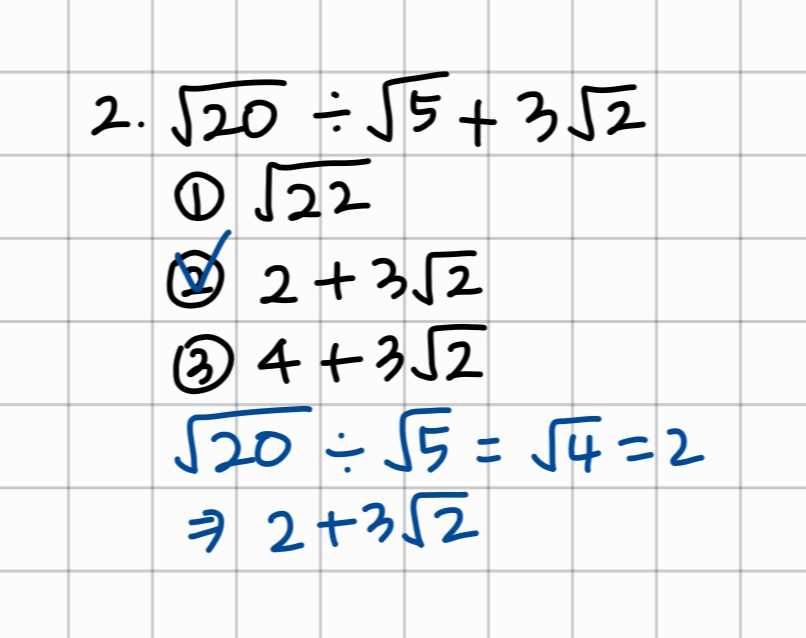 2. √20 ÷ √5 + 3√2
① √22
② 2 + 3√2
③ 4 + 3√2
√20 ÷ √5 = √4 = 2
⇒ 2 + 3√2